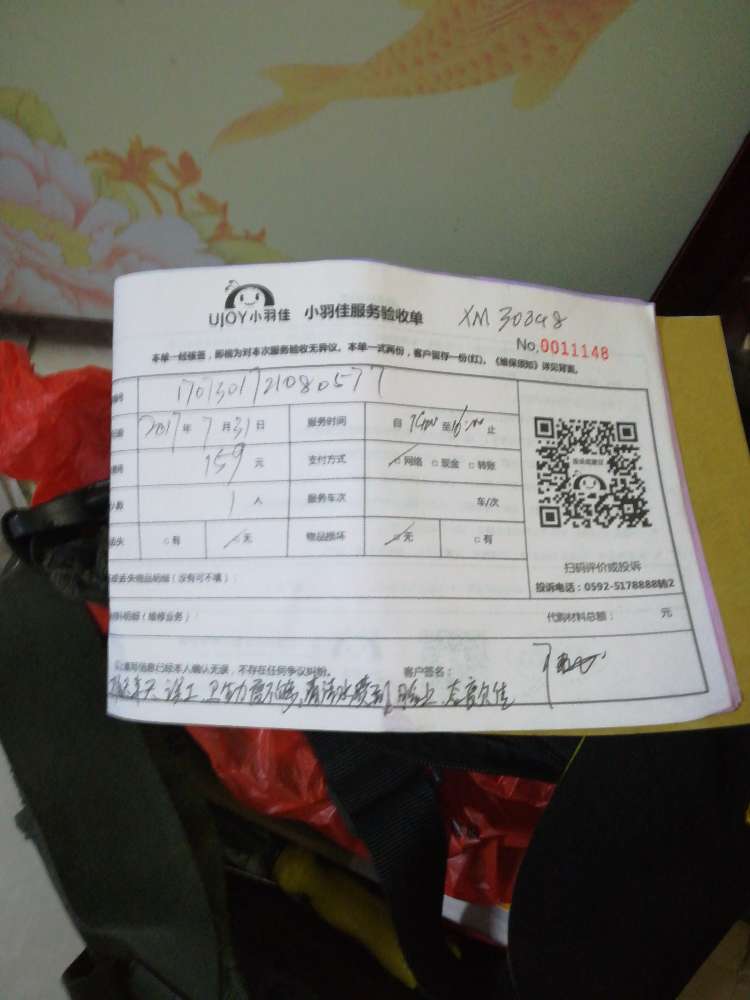 UJOY小羽佳 小羽佳服务验收单 XM 30348
No.0011148
本单一经签签，即视为对本次服务验收无异议。本单一式两份，客户留存一份(红)。《维保须知》详见背面。
编号 1707301721080577
2017年 7月 31日 服务时间 自 至 16:00 止
159 元 支付方式 网络 □ 现金 □ 转账
人数 1 人 服务车次 车/次
丢失 □有 □无 物品损坏 □无 □有
扫码评价或投诉
投诉电话：0592-5178888转2
或丢失物品明细（没有可不填）：
料明细（维修业务）： 代购材料总额： 元
以上填写信息已经本人确认无误，不存在任何争议纠纷。 客户签名：
误工 卫生力度不够，清洁水喷到脸上 态度欠佳